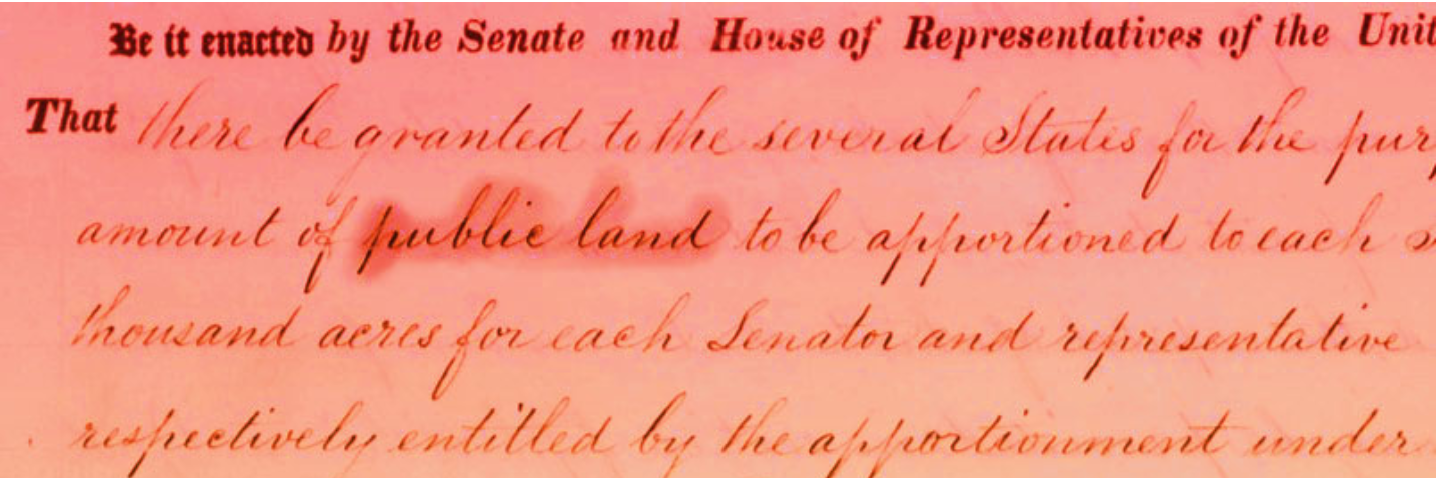 Be it enacted by the Senate and House of Representatives of the Unit
That there be granted to the several States for the pur
amount of public land to be apportioned to each
thousand acres for each Senator and representative
respectively entitled by the apportionment under